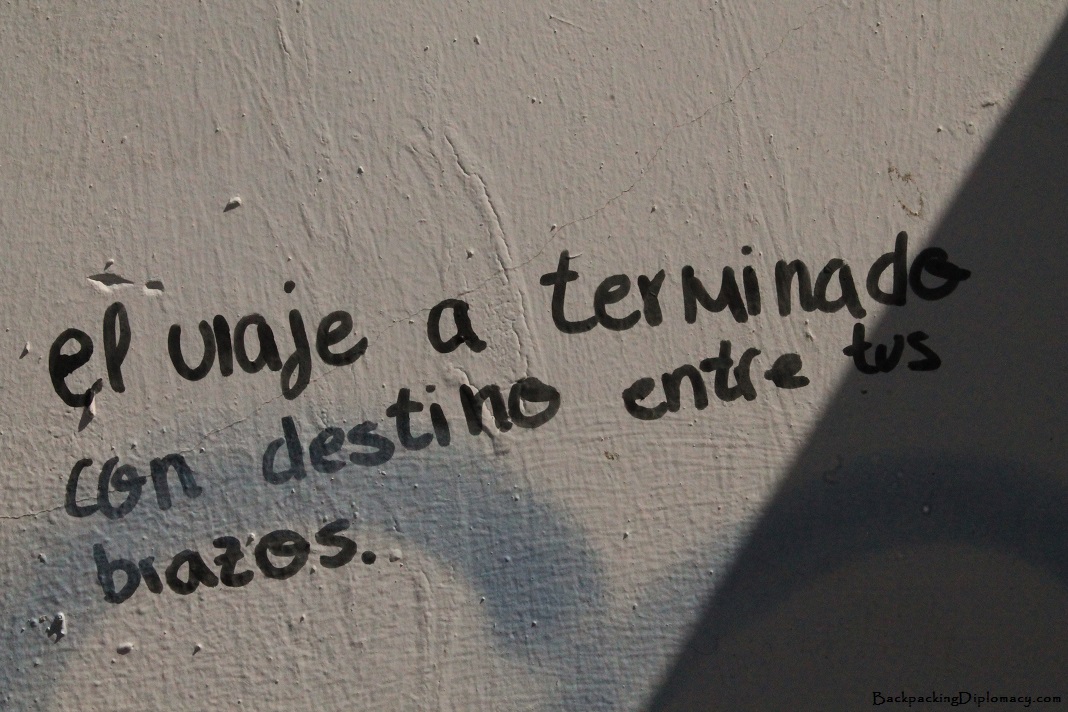 el viaje a terminado
con destino entre tus
brazos.
BackpackingDiplomacy.com